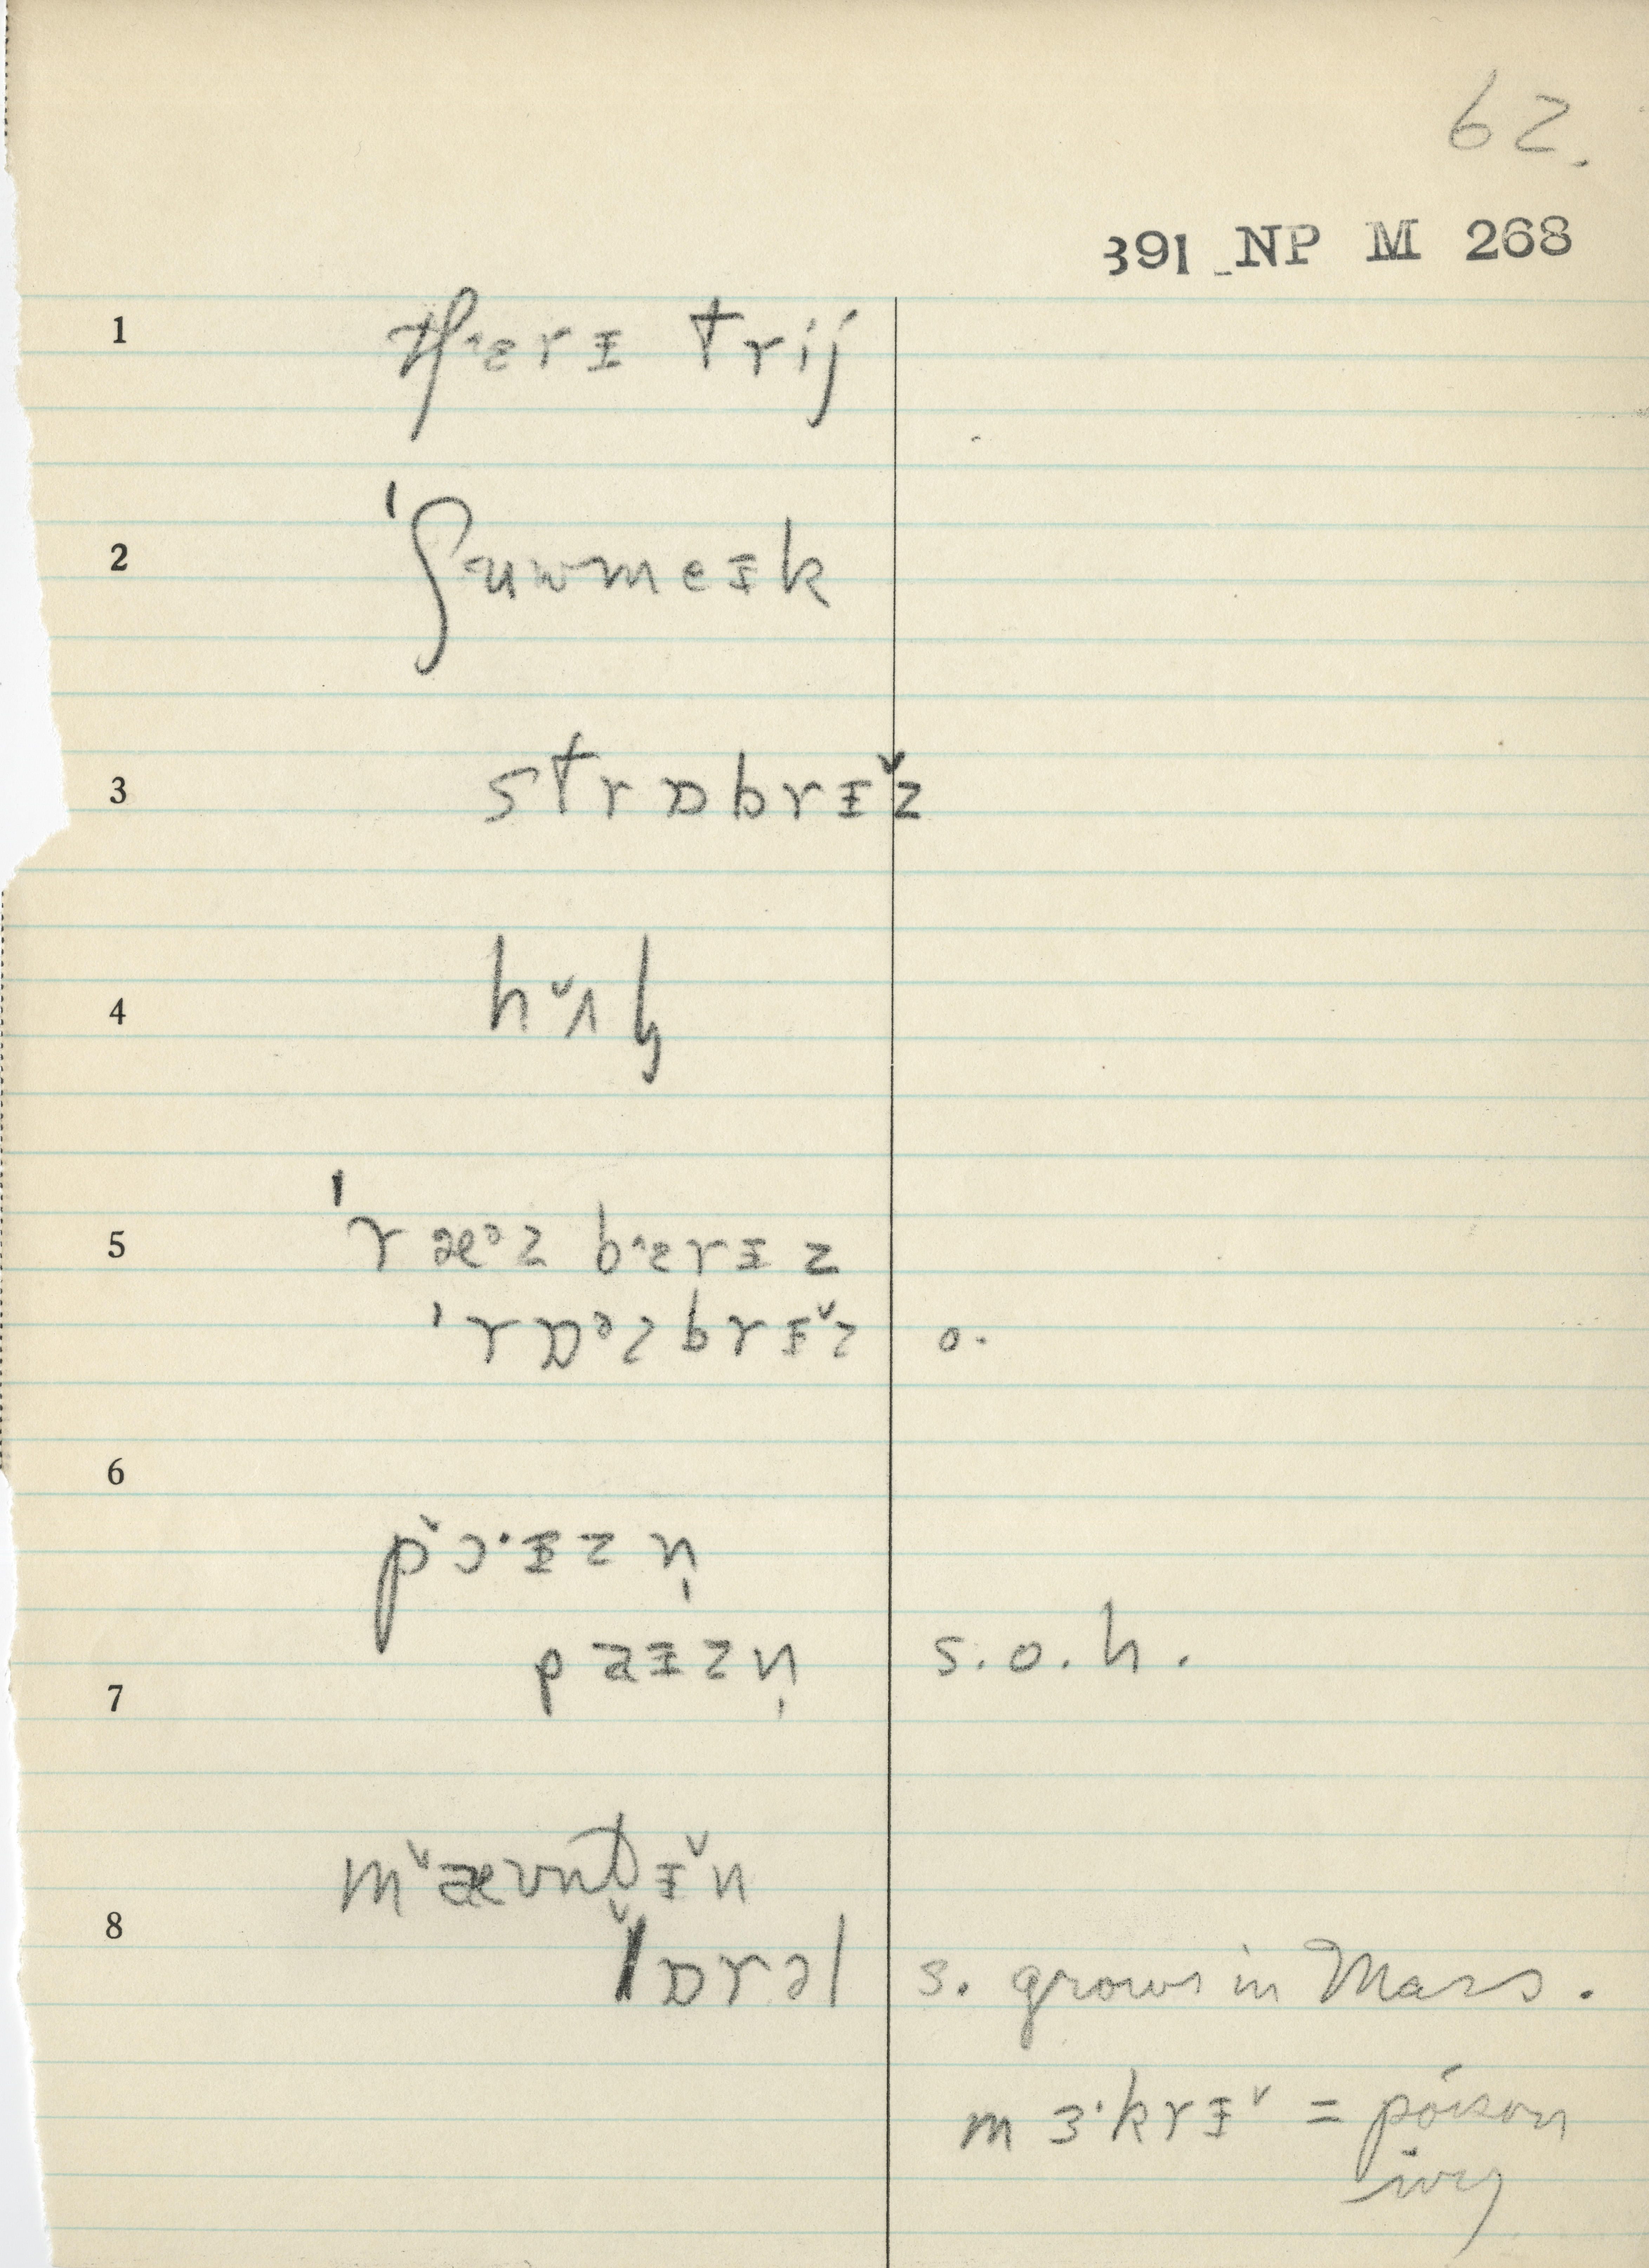 62.
391 NP M 268
1 tʃ˄ɛrɪ trij
2 ˈʃuwmeɪk
3 strɒbrɪ˅z
4 h˅ʌɫ
5 ˈræᵊz b˄ɛrɪz
ˈrɒᵊzbrɪ˅z o.
6
p˅ɔ·ɪzn̩
7 paɪzn̩ s.o.h.
m˅æʊntɪ˅n
8 l˅ɒrəl s. grows in Mass.
mɜ·krɪ˅ = poison
ivy